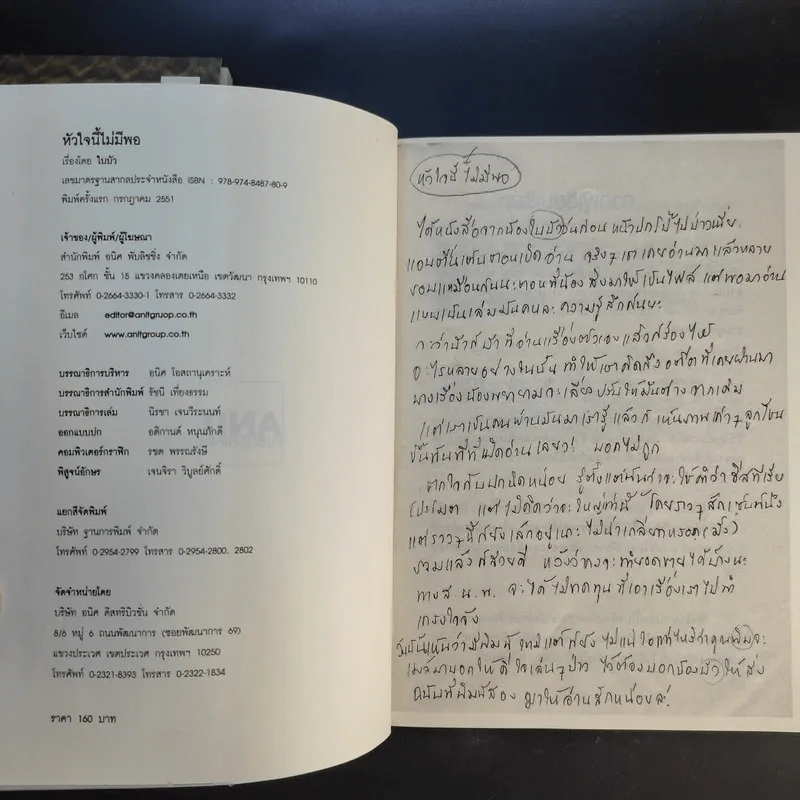 หัวใจนี้ไม่มีพอ
เรื่องโดย ใบบัว
เลขมาตรฐานสากลประจำหนังสือ ISBN : 978-974-8487-80-9
พิมพ์ครั้งแรก กรกฎาคม 2551
เจ้าของ/ผู้พิมพ์/ผู้โฆษณา
สำนักพิมพ์ อนิศ พับลิชชิ่ง จำกัด
253 อโศก ชั้น 15 แขวงคลองเตยเหนือ เขตวัฒนา กรุงเทพฯ 10110
โทรศัพท์ 0-2664-3330-1 โทรสาร 0-2664-3332
อีเมล editor@anitgruop.co.th
เว็บไซต์ www.anitgroup.co.th
บรรณาธิการบริหาร อนิศ โอสถานุเคราะห์
บรรณาธิการสำนักพิมพ์ รัชนี เที่ยงธรรม
บรรณาธิการเล่ม นิรชา เจนวีระนนท์
ออกแบบปก อติกานต์ หนุนภักดี
คอมพิวเตอร์กราฟิก รชต พรรณรังษี
พิสูจน์อักษร เจนจิรา วิบูลย์ศักดิ์
แยกสีจัดพิมพ์
บริษัท ฐานการพิมพ์ จำกัด
โทรศัพท์ 0-2954-2799 โทรสาร 0-2954-2800, 2802
จัดจำหน่ายโดย
บริษัท อนิศ ดิสทริบิวชั่น จำกัด
8/6 หมู่ 6 ถนนพัฒนาการ (ซอยพัฒนาการ 69)
แขวงประเวศ เขตประเวศ กรุงเทพฯ 10250
โทรศัพท์ 0-2321-8393 โทรสาร 0-2322-1834
ราคา 160 บาท
หัวใจนี้ ไม่มีพอ
ได้หนังสือจากน้องใบบัววันก่อน หน้าปกโป๊ไปป่าวเนี่ย
แอบตื่นเต้นตอนเปิดอ่าน จริงๆ เราเคยอ่านมาแล้วหลาย
รอบเหมือนกันนะตอนที่น้องส่งมาให้เป็นไฟล์ แต่พอมาอ่าน
แบบเป็นเล่มมันคนละความรู้สึกนะ
อะไรหลายอย่างในนั้น ทำให้เราคิดถึงอดีตที่เคยผ่านมา
บางเรื่องน้องพยายามจะเลี่ยง ปรับให้มันต่างจากเดิม
แต่เราเป็นคนผ่านมันมาเรารู้ แล้วก็เห็นภาพเก่าๆ
ขึ้นทันทีที่เปิดอ่านเลยว่ะ! บอกไม่ถูก
ตกใจกับปกนิดหน่อย
แต่ไม่คิดว่าจะใหญ่เท่านี้
รวมแล้วก็สวยดี หวังว่าคงจะทำยอดขายได้บ้างนะ
ทาง ส.น.พ. จะได้ไม่ขาดทุนที่เอาเรื่องเราไปทำ
เกรงใจจัง
ฉบับที่พิมพ์สอง มาให้อ่านสักหน่อยล่ะ!